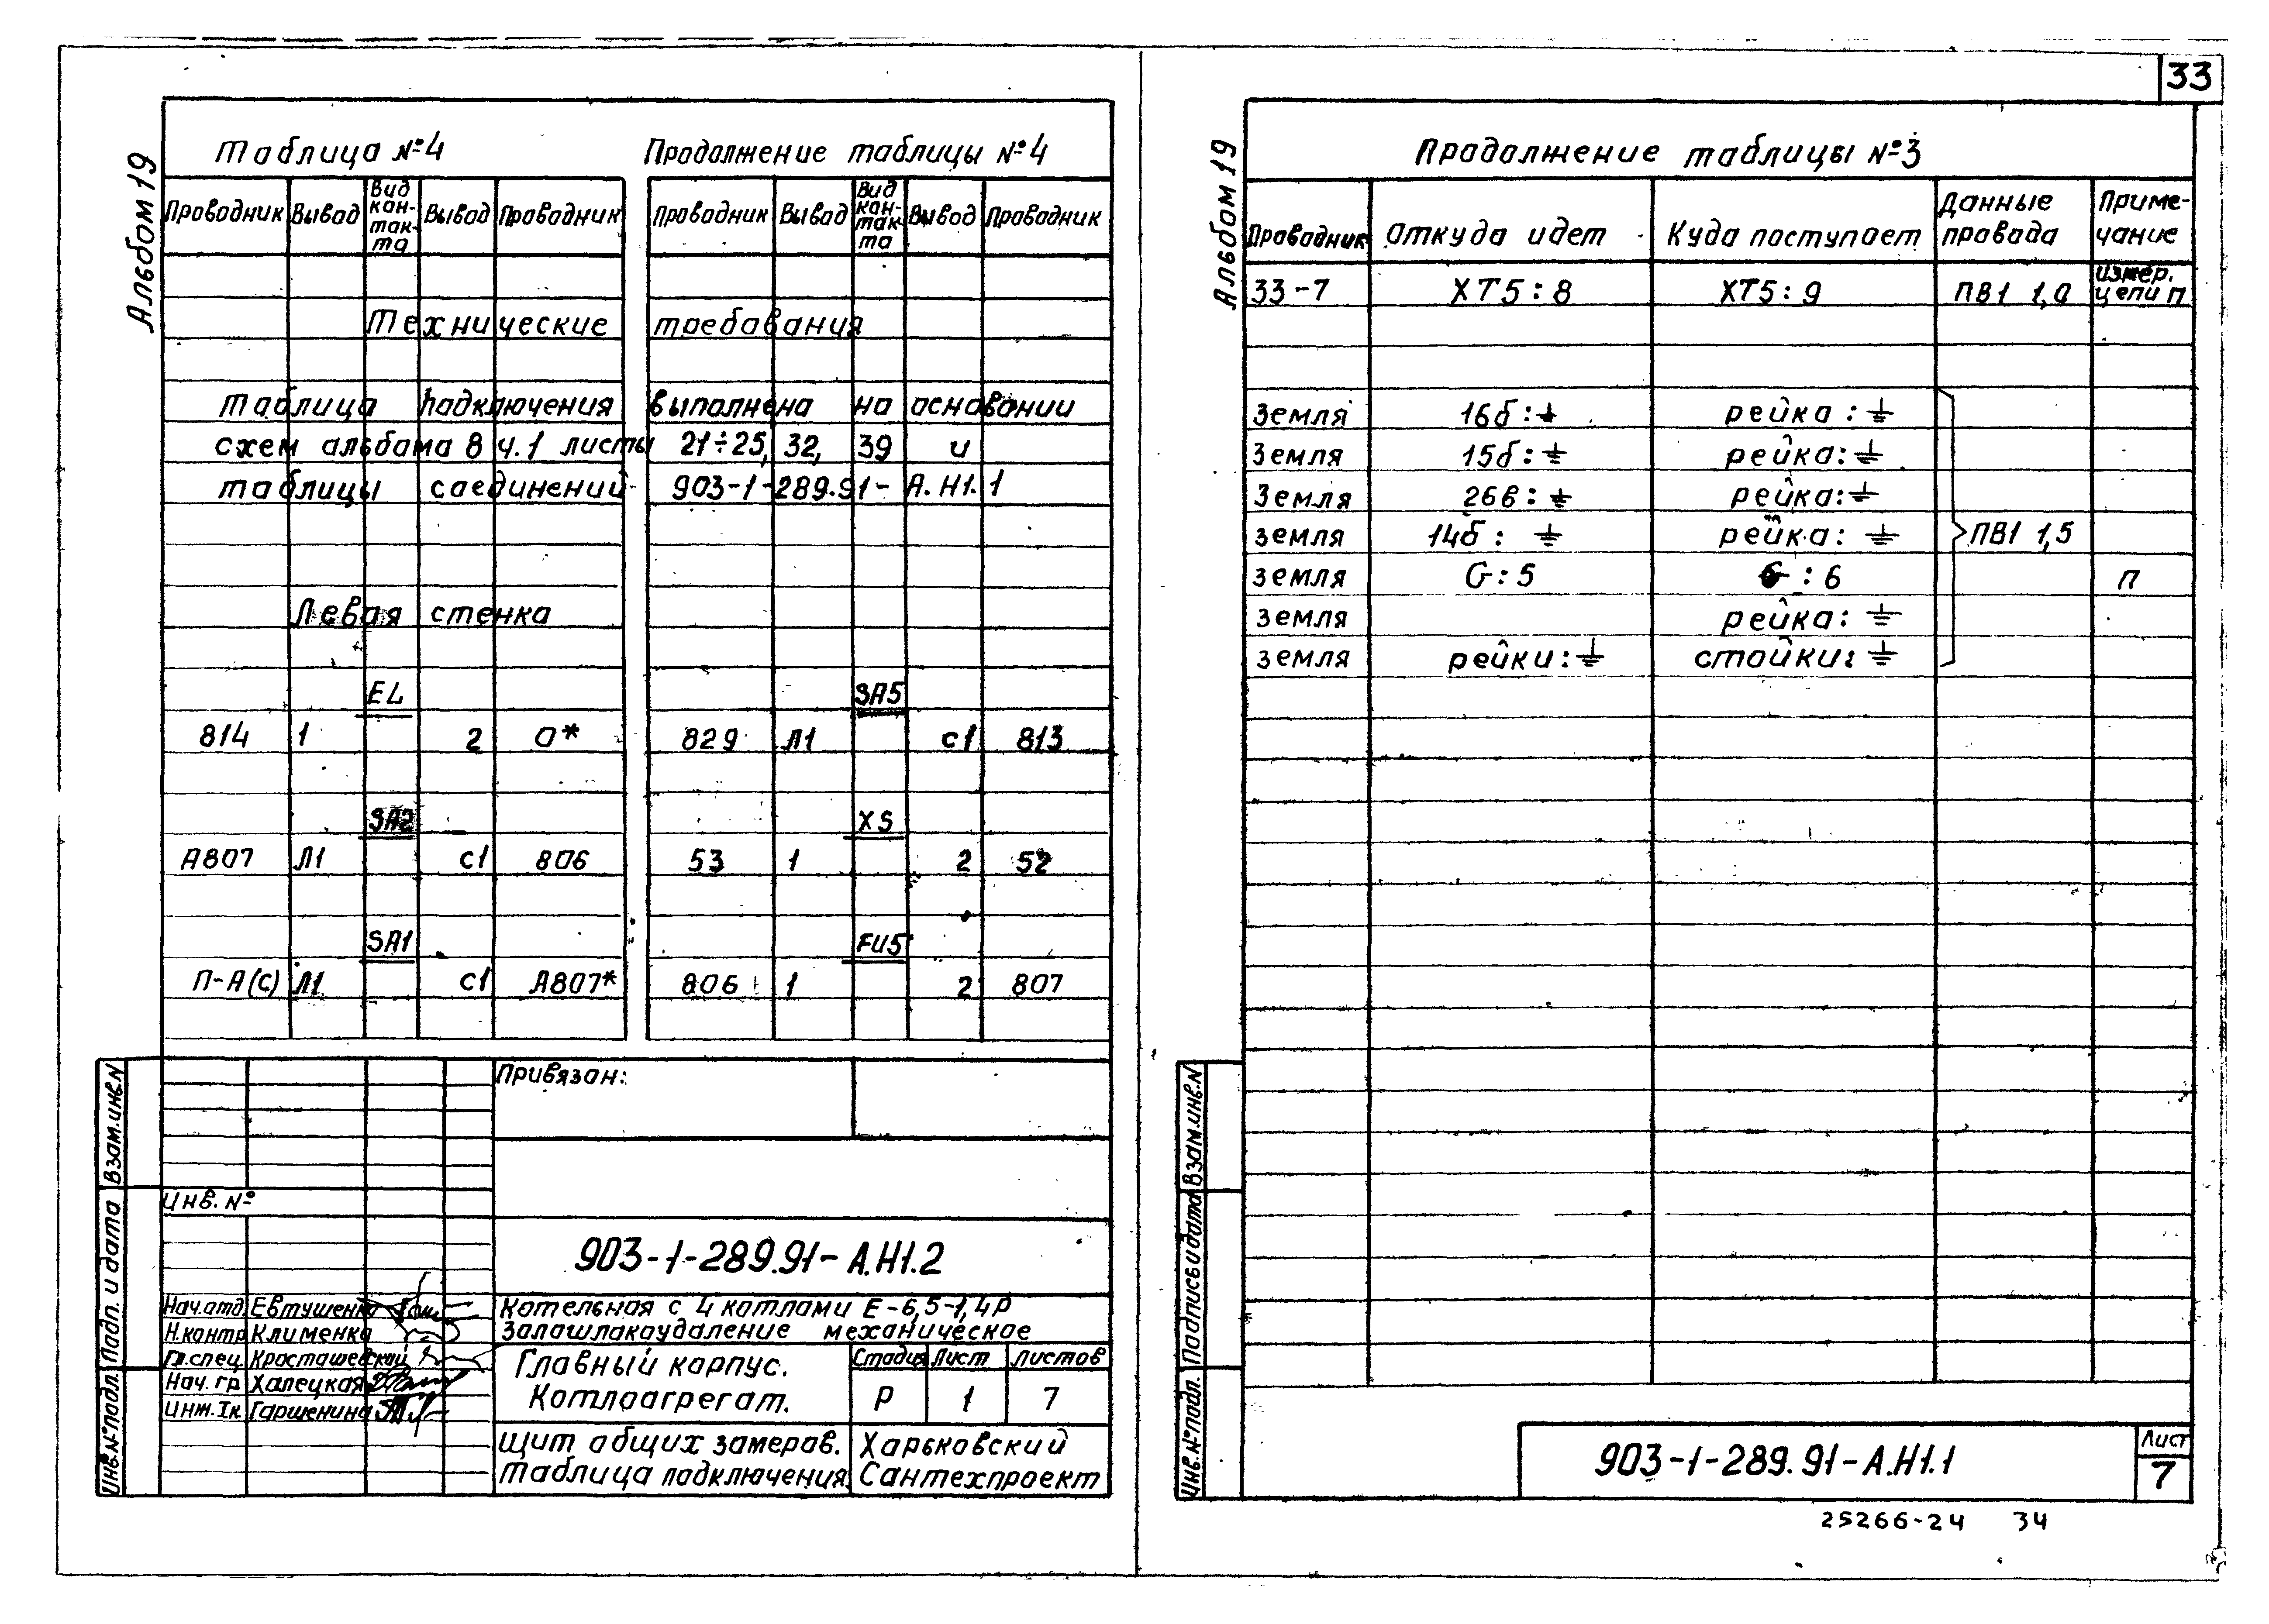 33
Альбом 19
Таблица №4
Продолжение таблицы №4
Проводник Вывод Вид кон-так-та Вывод Проводник
Проводник Вывод Вид кон-так-та Вывод Проводник
Технические требования
Таблица подключения выполнена на основании
схем альбома 8 ч.1 листы 21÷25, 32, 39 и
таблицы соединений 903-1-289.91-А.Н1.1
Левая стенка
EL SA5
814 1 2 0* 829 Л1 С1 813
SA2 XS
А807 Л1 С1 806 53 1 2 52
SA1 FU5
П-А(С) Л1 С1 А807* 806 1 2 807
Привязан:
Инв. №
903-1-289.91-А.Н1.2
Нач.отд. Евтушенко
Н.контр Клименко
Гл.спец. Красташевский
Нач. гр Халецкая
Инж. Iк Гаршенина
Котельная с 4 котлами Е-6,5-1,4Р
Золошлакоудаление механическое
Главный корпус.
Котлоагрегат.
Стадия Лист Листов
Р 1 7
Щит общих замеров.
Таблица подключения.
Харьковский
Сантехпроект
Взам.инв.N
Подп. и дата
Инв.№подл.
Альбом 19
Продолжение таблицы №3
Проводник Откуда идет Куда поступает Данные провода Приме-чание
33-7 ХТ5:8 ХТ5:9 ПВ1 1,0 Измер. цепи п
Земля 16б:⏚ рейка:⏚
Земля 15б:⏚ рейка:⏚
Земля 26в:⏚ рейка:⏚
Земля 14б:⏚ рейка:⏚ ПВ1 1,5
Земля G:5 G:6 п
Земля рейка:⏚
Земля рейки:⏚ стойки:⏚
Взам.инв.N
Подпись и дата
Инв.№подл.
903-1-289.91-А.Н1.1
Лист
7
25266-24 34